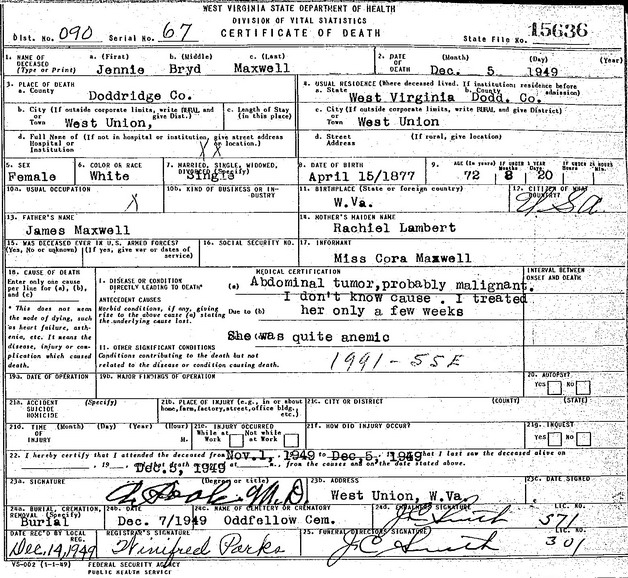 WEST VIRGINIA STATE DEPARTMENT OF HEALTH
DIVISION OF VITAL STATISTICS
CERTIFICATE OF DEATH
Dist. No. 090 Serial No. 67 State File No. 15636
1. NAME OF DECEASED (Type or Print) a. (First) b. (Middle) c. (Last) 2. DATE OF DEATH (Month) (Day) (Year)
Jennie Bryd Maxwell Dec. 5 1949
3. PLACE OF DEATH 4. USUAL RESIDENCE (Where deceased lived. If institution: residence before admission)
a. County Doddridge Co. a. State West Virginia b. County Dodd. Co.
b. City (If outside corporate limits, write RURAL and give Dist.) or Town West Union, c. Length of Stay (in this place)
c. City (If outside corporate limits, write RURAL and give District) or Town West Union
d. Full Name of (If not in hospital or institution, give street address or location.) Hospital or Institution X X
d. Street Address (If rural, give location)
5. SEX 6. COLOR OR RACE 7. MARRIED, SINGLE, WIDOWED, DIVORCED (Specify) 8. DATE OF BIRTH 9. AGE (In years) IF UNDER 1 Year Months Days IF UNDER 24 Hrs. Hours Min.
Female White Single April 15/1877 72 8 20
10a. USUAL OCCUPATION X 10b. KIND OF BUSINESS OR INDUSTRY 11. BIRTHPLACE (State or foreign country) 12. CITIZEN OF WHAT COUNTRY?
W.Va. USA.
13. FATHER'S NAME 14. MOTHER'S MAIDEN NAME
James Maxwell Rachiel Lambert
15. WAS DECEASED EVER IN U.S. ARMED FORCES? (Yes, No or unknown) (If yes, give war or dates of service) 16. SOCIAL SECURITY NO. 17. INFORMANT
Miss Cora Maxwell
18. CAUSE OF DEATH MEDICAL CERTIFICATION INTERVAL BETWEEN ONSET AND DEATH
Enter only one cause per line for (a), (b), and (c)
I. DISEASE OR CONDITION DIRECTLY LEADING TO DEATH* (a) Abdominal tumor,probably malignant.
I don't know cause. I treated
her only a few weeks
* This does not mean the mode of dying, such as heart failure, asthenia, etc. It means the disease, injury or complication which caused death.
ANTECEDENT CAUSES
Morbid conditions, if any, giving rise to the above cause (a) stating the underlying cause last. Due to (b)
She was quite anemic
II. OTHER SIGNIFICANT CONDITIONS
Conditions contributing to the death but not related to the disease or condition causing death.
1991-SSE
19a. DATE OF OPERATION 19b. MAJOR FINDINGS OF OPERATION 20. AUTOPSY?
Yes No
21a. ACCIDENT SUICIDE HOMICIDE (Specify) 21b. PLACE OF INJURY (e.g., in or about home, farm, factory, street, office bldg. etc.) 21c. CITY OR DISTRICT (COUNTY) (STATE)
21d. TIME OF INJURY (Month) (Day) (Year) (Hour) M. 21e. INJURY OCCURRED While at Work Not while at Work 21f. HOW DID INJURY OCCUR? 21g. INQUEST
Yes No
22. I hereby certify that I attended the deceased from Nov.1, 1949 to Dec.5, 1949 that I last saw the deceased alive on
Dec.5, 1949 from the causes and on the date stated above.
23a. SIGNATURE (Degree or title) 23b. ADDRESS 23c. DATE SIGNED
M.D. West Union, W.Va.
24a. BURIAL, CREMATION, REMOVAL (Specify) 24b. DATE 24c. NAME OF CEMETERY OR CREMATORY 24d. EMBALMER'S SIGNATURE LIC. NO.
Burial Dec. 7/1949 Oddfellow Cem. JC Smith 571
DATE REC'D BY LOCAL REG. REGISTRAR'S SIGNATURE 25. FUNERAL DIRECTOR'S SIGNATURE LIC. NO.
Dec, 14, 1949 Winifred Parks JC Smith 301
VS-002 (1-1-49) FEDERAL SECURITY AGENCY
PUBLIC HEALTH SERVICE